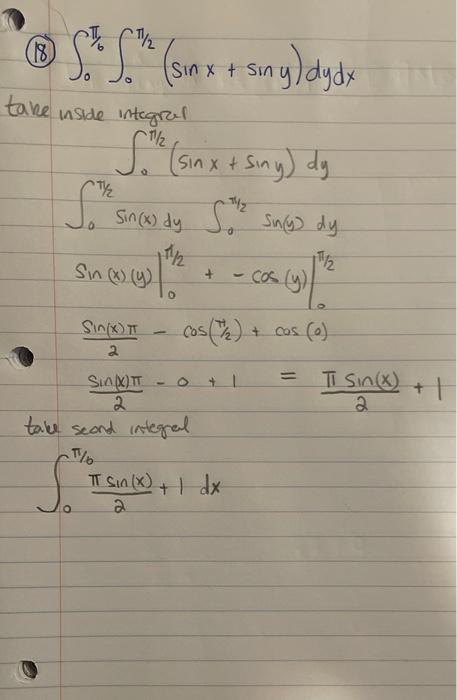 (18) ∫₀^(π/6) ∫₀^(π/2) (sin x + sin y) dy dx
take inside integral
∫₀^(π/2) (sin x + sin y) dy
∫₀^(π/2) sin(x) dy ∫₀^(π/2) sin(y) dy
sin(x)(y)|₀^(π/2) + - cos(y)|₀^(π/2)
sin(x)π/2 - cos(π/2) + cos(0)
sin(x)π/2 - 0 + 1 = π sin(x)/2 + 1
take second integral
∫₀^(π/6) π sin(x)/2 + 1 dx